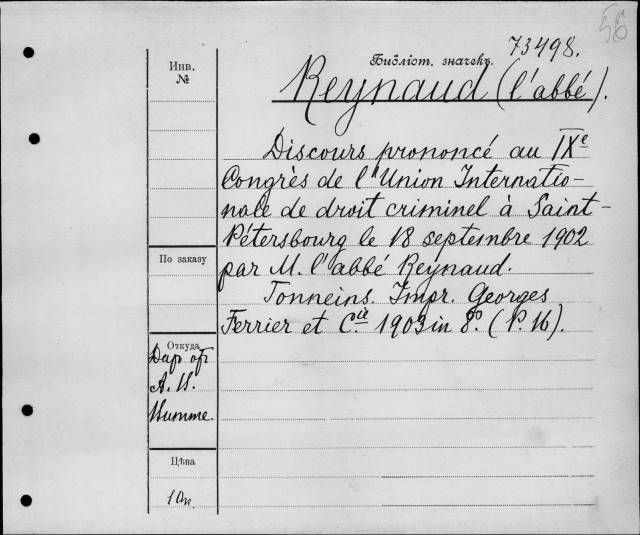 56
73498.
Библіот. значекъ.
Инв.
№
Reynaud (l'abbé).
Discours prononcé au IXe
Congrès de l'Union Internatio-
nale de droit criminel à Saint-
Pétersbourg le 18 septembre 1902
par M. l'abbé Reynaud.
Tonneins. Impr. Georges
Ferrier et Cie 1903 in 8º. (P. 16).
По заказу
Откуда
Даръ отъ
А. И.
Цѣна